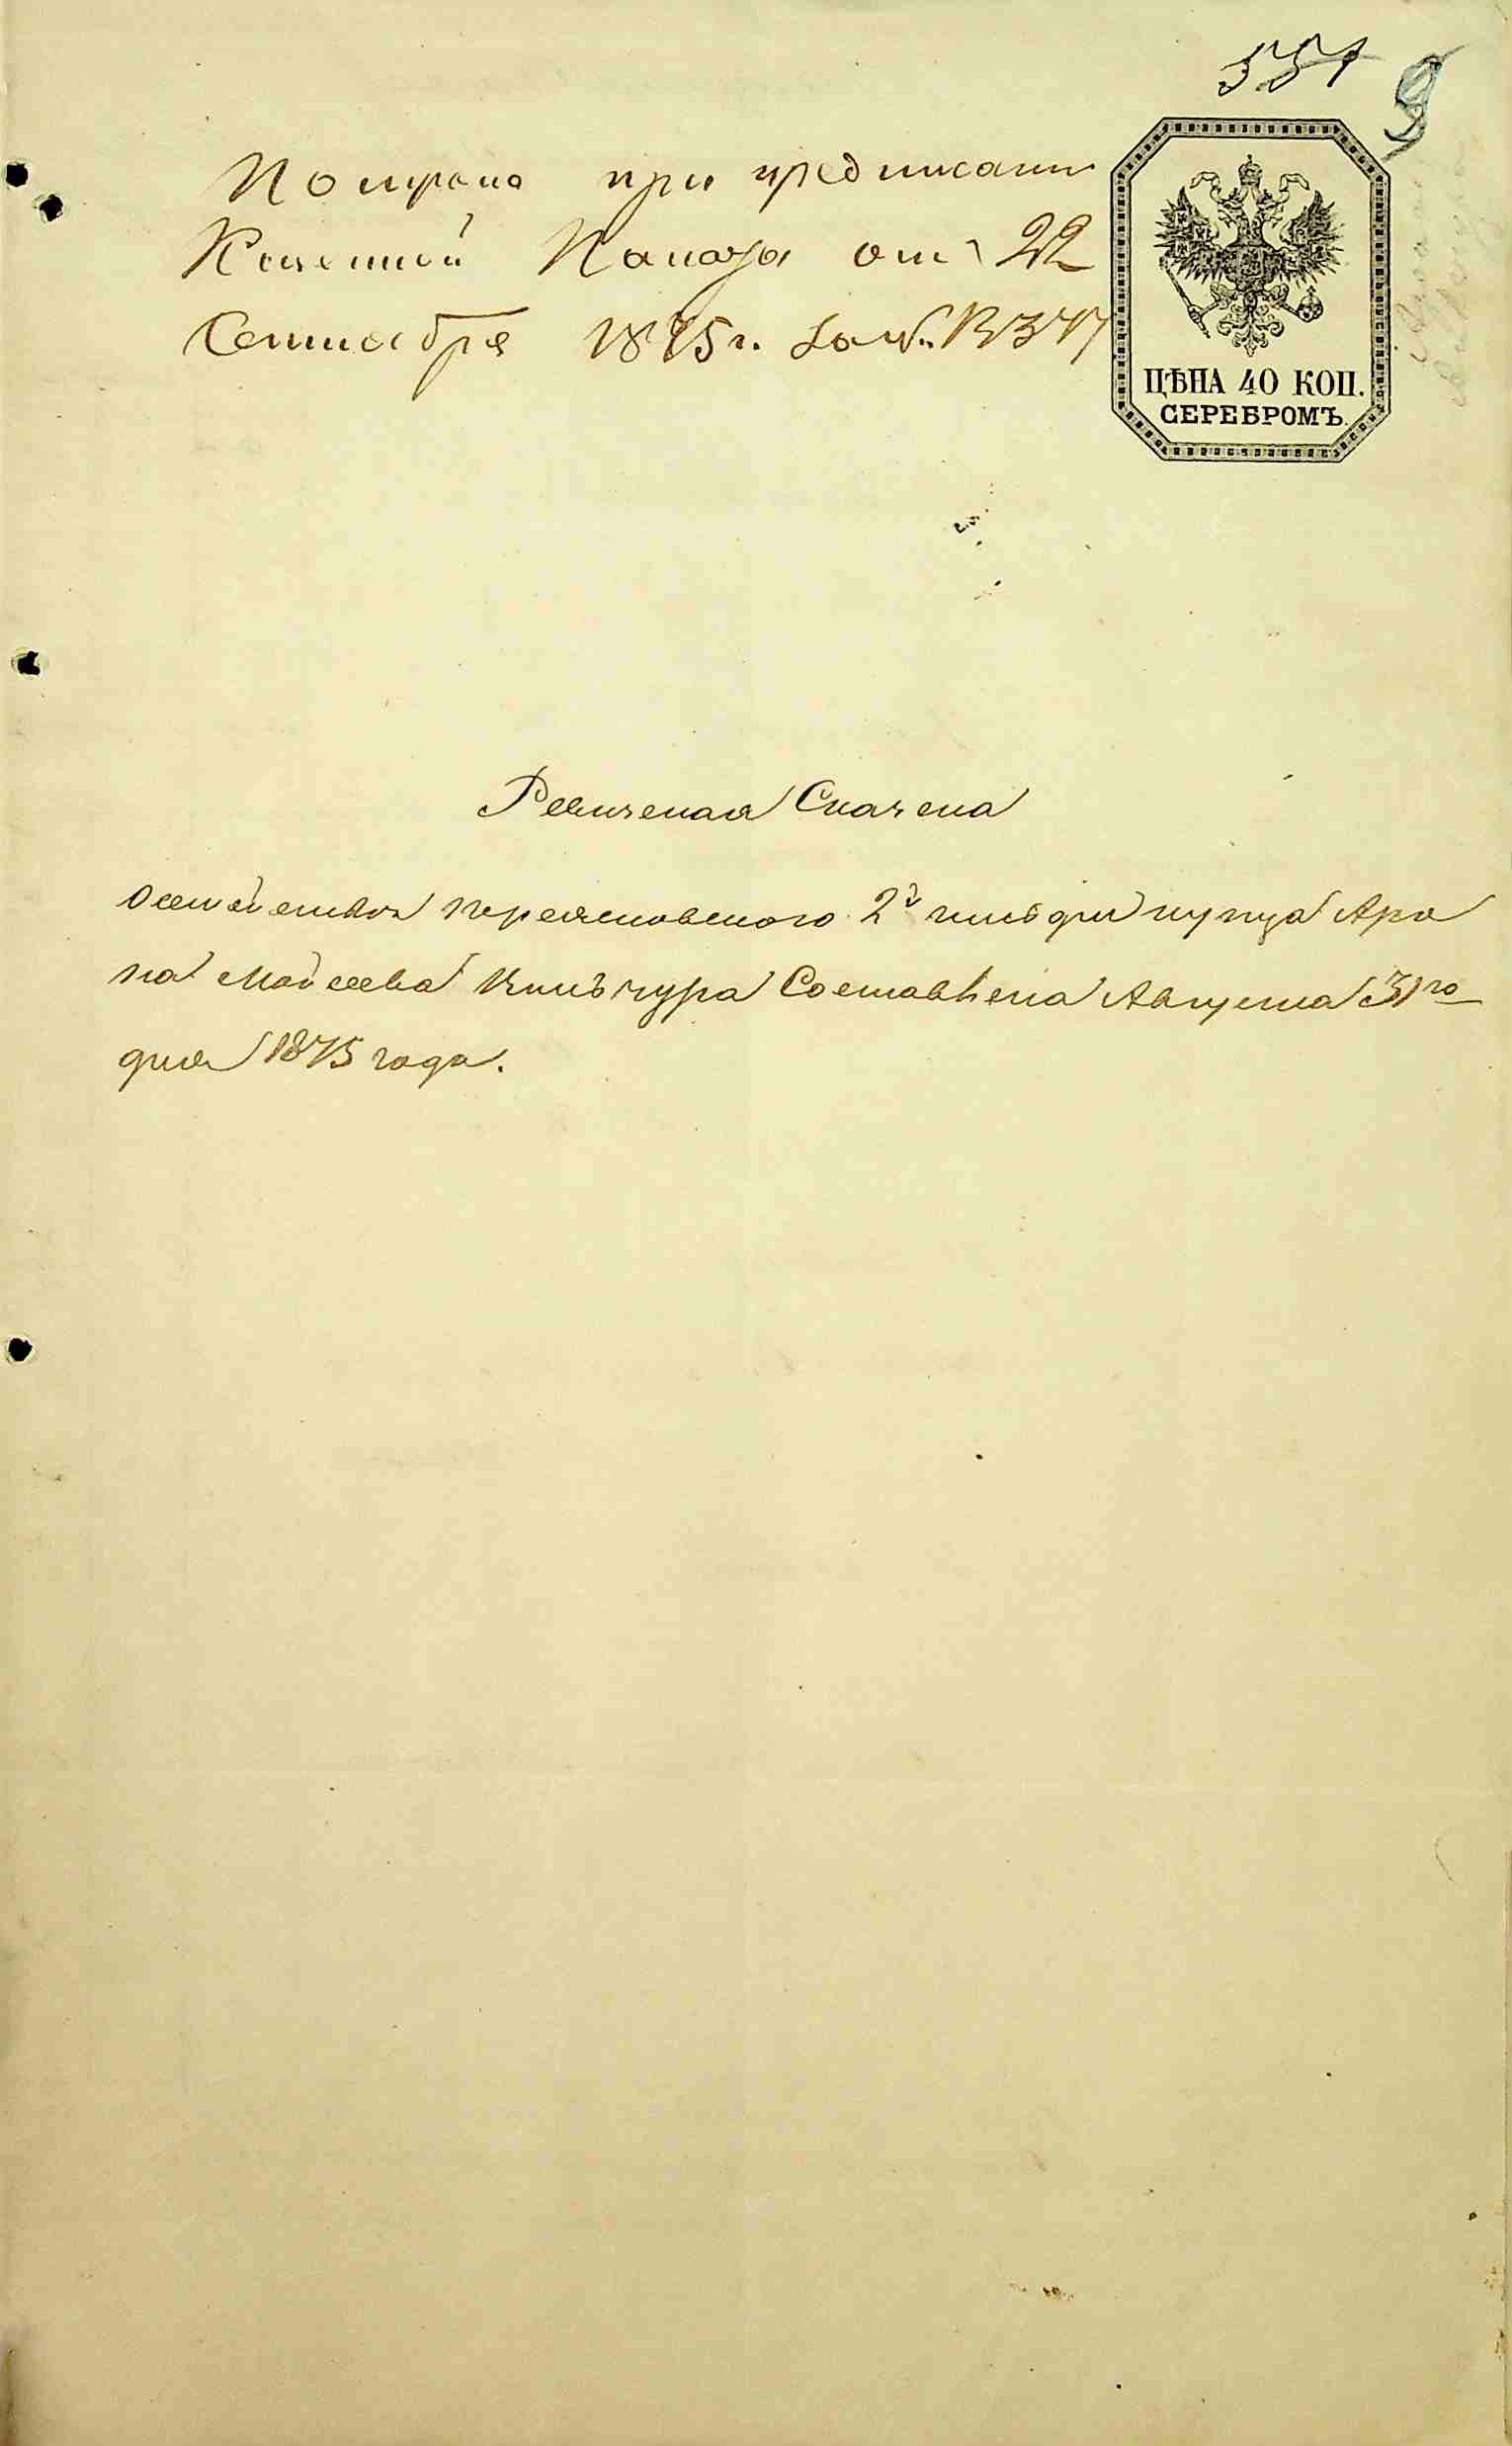 551 9
Получена при предписании
Казенной Палаты отъ 22
Сентября 1875 г. за №. 13347
ЦѢНА 40 КОП.
СЕРЕБРОМЪ.
Ревизская Сказка
О семействѣ Переяславского 2й гильдіи купца Аро
на Мойсеева Кильчура Составлена Августа 31го
дня 1875 года.